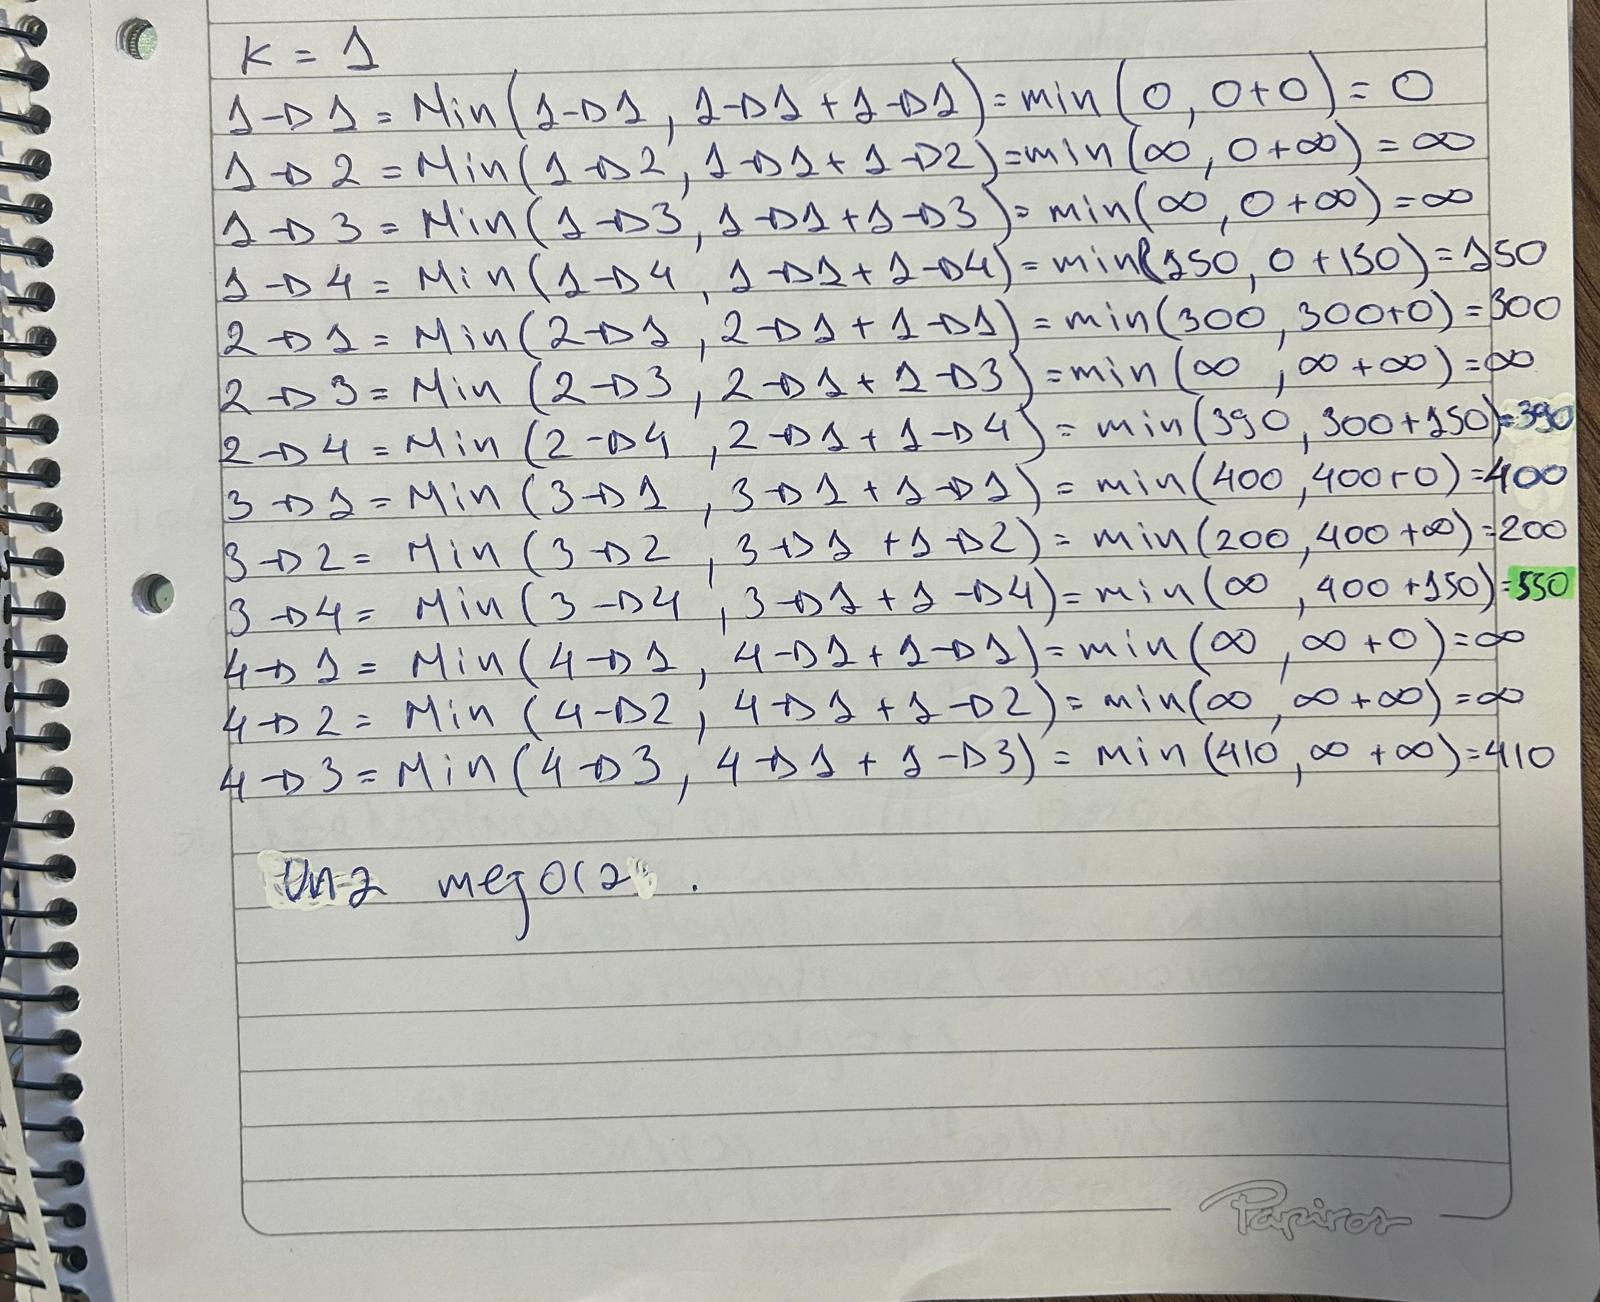 K = 1
1→1 = Min(1→1, 1→1 + 1→1) = min(0, 0+0) = 0
1→2 = Min(1→2, 1→1 + 1→2) = min(∞, 0+∞) = ∞
1→3 = Min(1→3, 1→1 + 1→3) = min(∞, 0+∞) = ∞
1→4 = Min(1→4, 1→1 + 1→4) = min(150, 0+150) = 150
2→1 = Min(2→1, 2→1 + 1→1) = min(300, 300+0) = 300
2→3 = Min(2→3, 2→1 + 1→3) = min(∞, ∞+∞) = ∞
2→4 = Min(2→4, 2→1 + 1→4) = min(390, 300+150) = 390
3→1 = Min(3→1, 3→1 + 1→1) = min(400, 400+0) = 400
3→2 = Min(3→2, 3→1 + 1→2) = min(200, 400+∞) = 200
3→4 = Min(3→4, 3→1 + 1→4) = min(∞, 400+150) = 550
4→1 = Min(4→1, 4→1 + 1→1) = min(∞, ∞+0) = ∞
4→2 = Min(4→2, 4→1 + 1→2) = min(∞, ∞+∞) = ∞
4→3 = Min(4→3, 4→1 + 1→3) = min(410, ∞+∞) = 410
Papiros